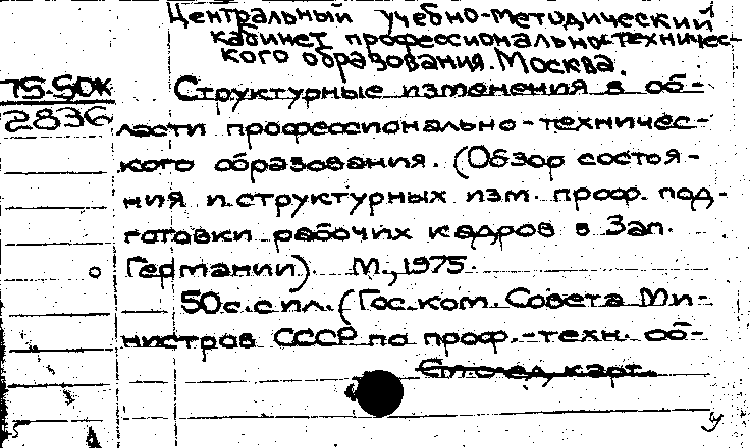 Центральный учебно-методический
кабинет профессионально-техничес-
кого образования. Москва.
75-50К
2836
Структурные изменения в об-
ласти профессионально-техничес-
кого образования. (Обзор состоя-
ния и структурных изм. проф. под-
готовки рабочих кадров в Зап.
Германии). М., 1975.
50 с. с ил. (Гос. ком. Совета Ми-
нистров СССР по проф.-техн. об-
карт.